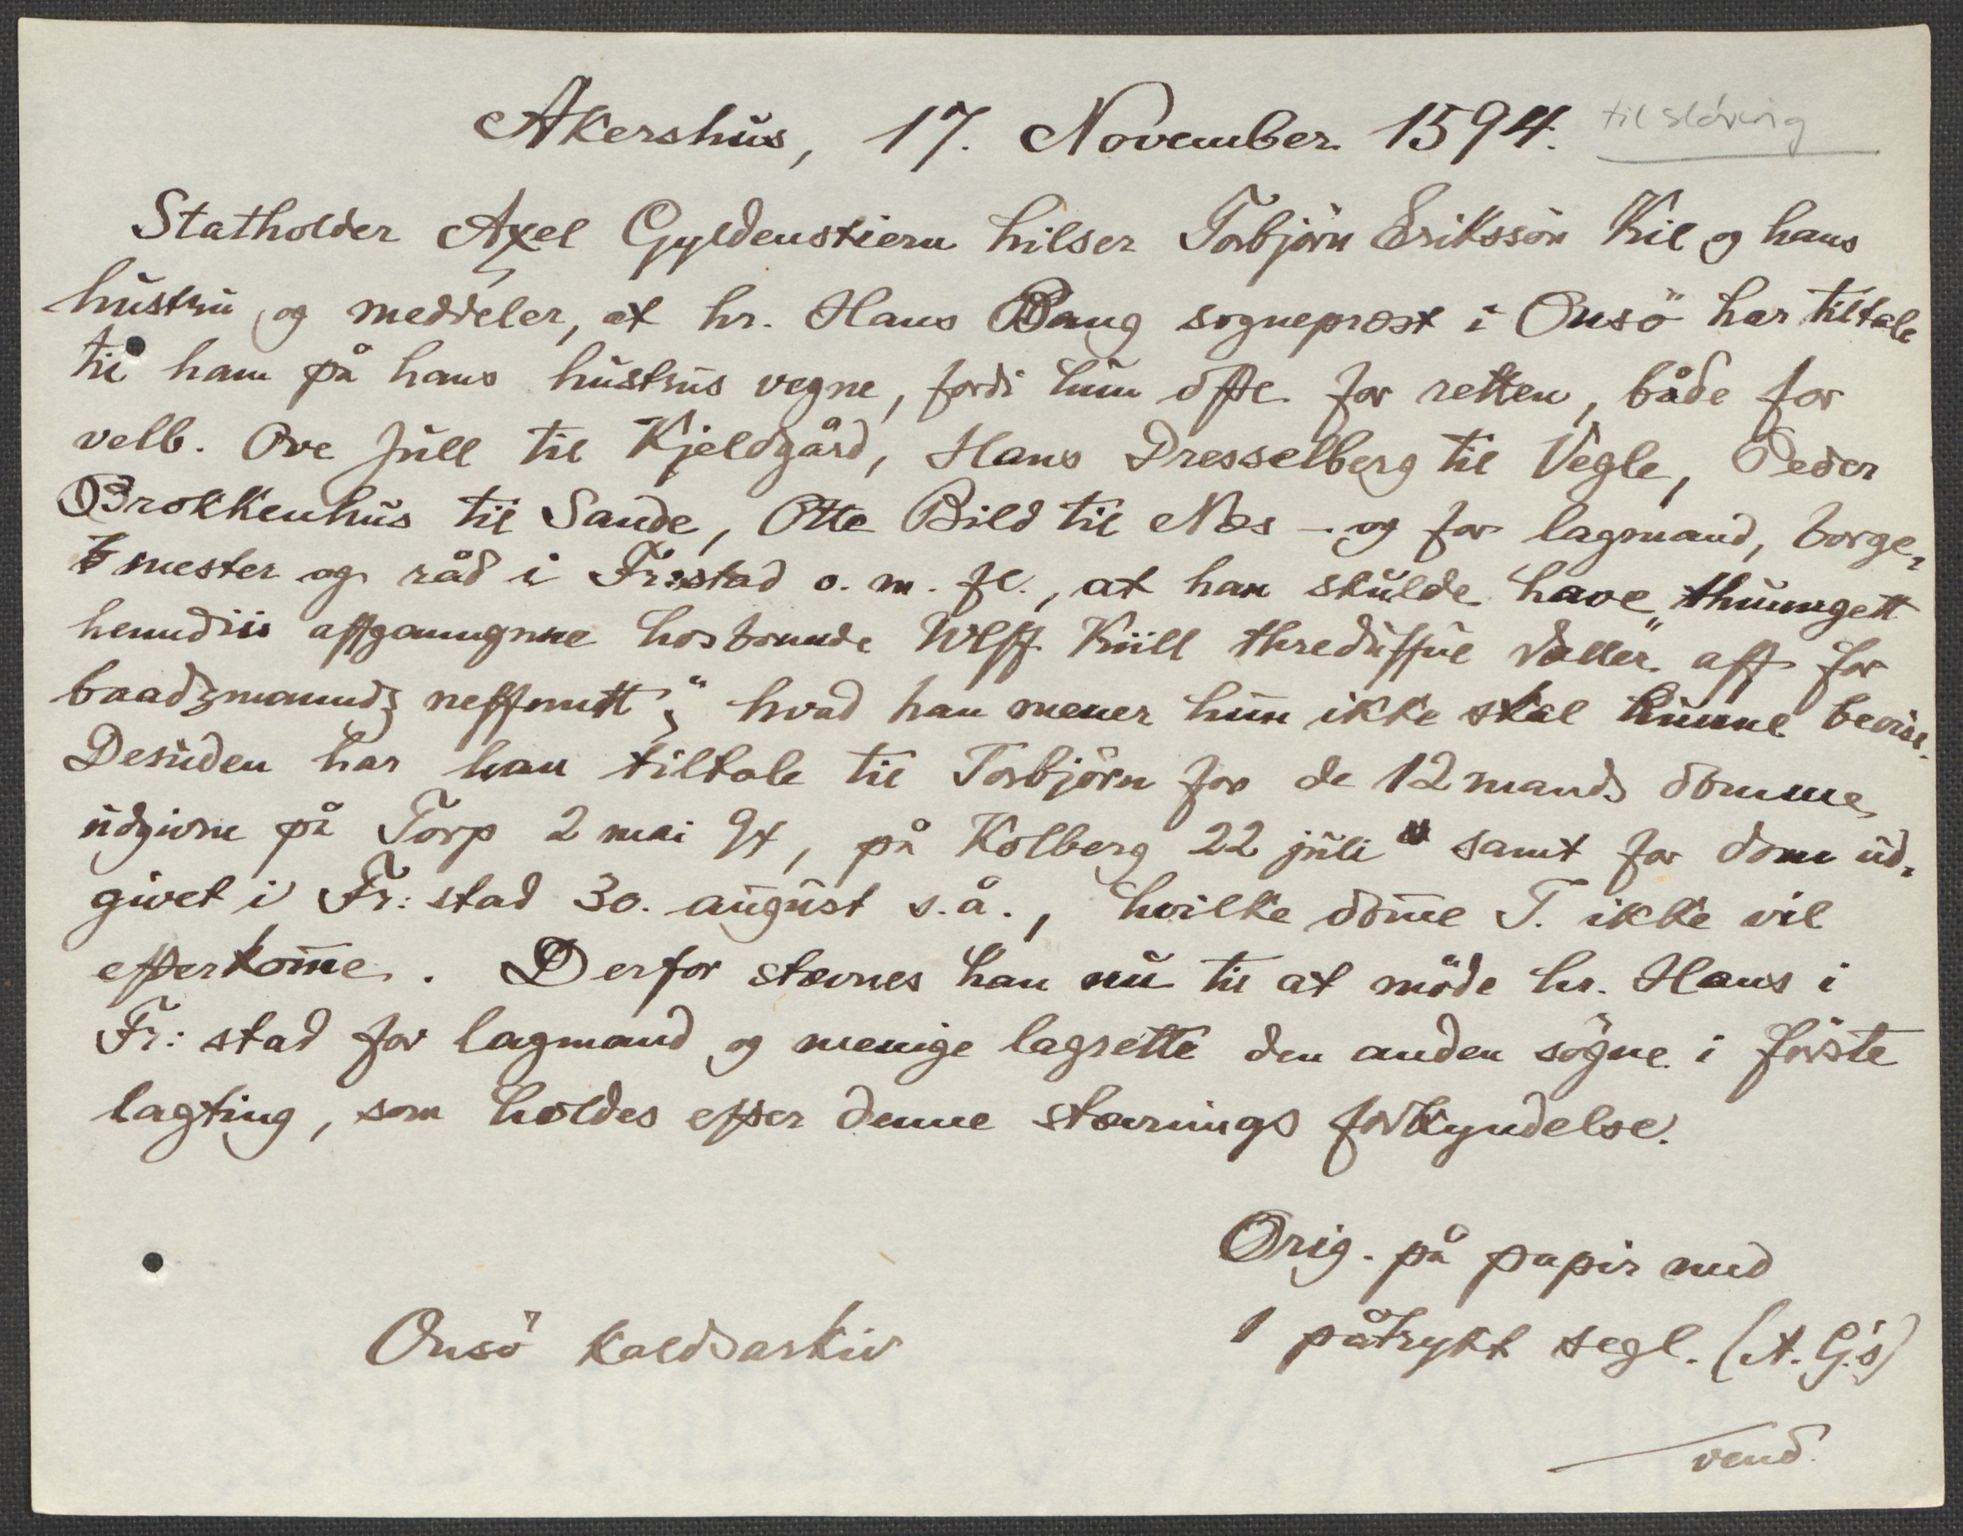 Akershus, 17. November 1594. til sløring
Statholder Axel Gyldenstiern hilser Torbjörn Erikssön Kiil og hans
hustru og meddeler, at hr. Hans Bang sognepræst i Onsö har tiltale
til ham på hans hustrus vegne, fordi hun ofte for retten, både for
velb. Ove Jull til Kjeldgård, Hans Dresselberg til Vegle, Peder
Brokkenhus til Sande, Otte Bild til Næs – og for lagmand, borge-
mester og råd i Fr:stad o. m. fl., at han skulde have "thuungett
henndis affganngnne hosbonnde Wlff Kiill threduffue daller aff for
baadzmanndz neffnntt", hvad han mener hun ikke skal kunne bevise.
Desuden har han tiltale til Torbjörn for de 12 mands domme,
udgivne på Torp 2 mai 94, på Kolberg 22 juli " samt for dom ud-
givet i Fr: stad 30. august s. å., hvilke dom̄e T. ikke vil
efterkom̄e. Derfor stævnes han nu til at möde hr. Hans i
Fr: stad for lagmand og menige lagrette den anden sögne i förste
lagting, som holdes efter denne stævnings forkyndelse.
Orig. på papir med
Onsö kaldsarkiv 1 påtrykt segl. (A. G.'s)
vend.